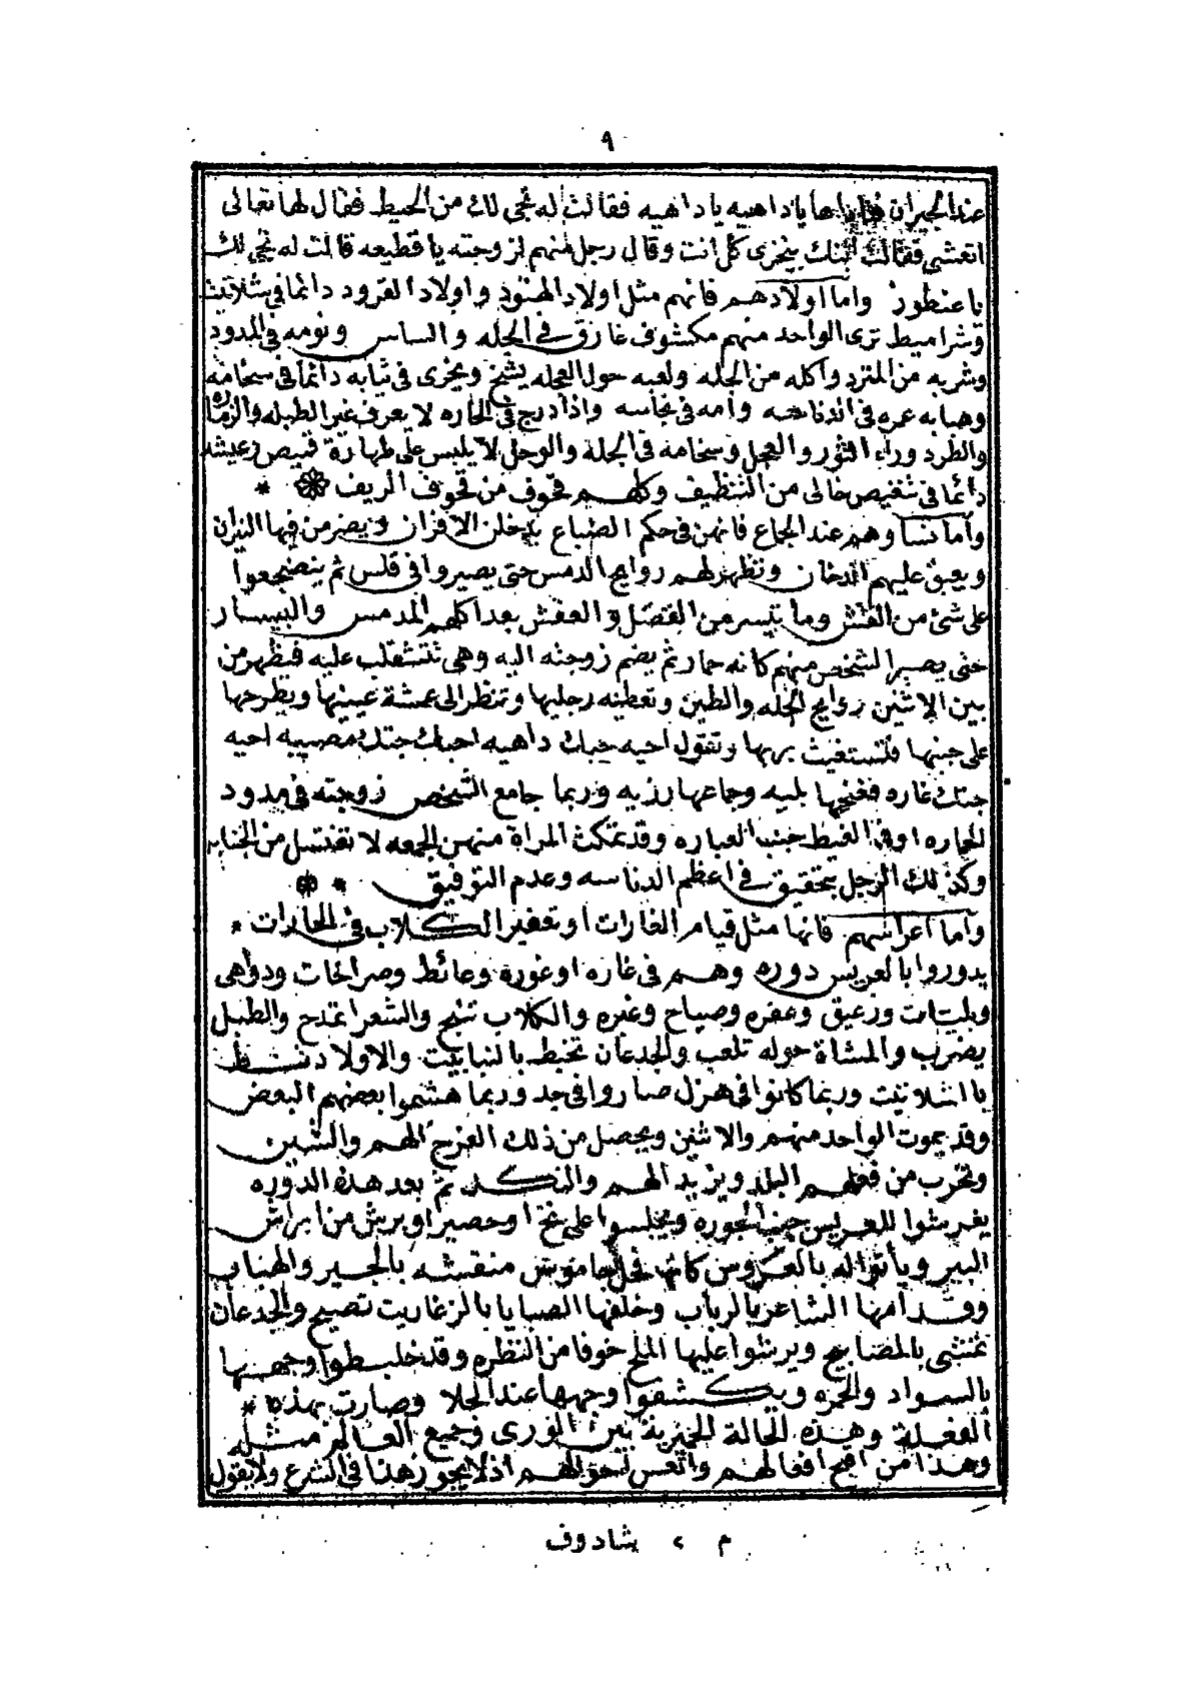 ٩
عند الجيران فناداها ياداهيه ياداهيه فقالت له تجى لك من الحيط فقال لها تعالى
اتعشى فقالت ابنك بيخرى كل انت وقال رجل منهم لزوجته يا قطيعه قالت له تجى لك
يا عنطوز واما اولادهم فانهم مثل اولاد الهنود واولاد القرود دائما فى شلاتيت
وشراميط ترى الواحد منهم مكشوف غارق فى الجله والساس ونومه فى المدود
وشربه من المترد واكله من الجله ولعبه حول العجله يشخ ويخرى فى ثيابه دائما فى سخامه
وهبابه عمره فى الدناسه وامه فى نجاسه واذا درج فى الحاره لا يعرف غير الطبله والزماره
والطرد وراء الثور والعجل وسخامه فى الجلة والوحل لا يلبس على طهارة قميص وعيشه
دائما فى تنغيص خالى من التنظيف وكلهم قحوف من قحوف الريف *
واما نساوهم عند الجماع فانهن فى حكم الضباع يدخلن الافران ويضرمن فيها النيران
ويعبق عليهم الدخان وتظهر لهم روايح الدمس حتى يصيروا فى قلس ثم ينضجعوا
على شئ من القش وما تيسر من القصل والعفش بعد اكلهم المدمس والبيسار
حتى يصير الشخص منهم كانه حمار ثم يضم زوجته اليه وهى تتشقلب عليه فيظهر من
بين الاثنين روايح الجله والطين وتعطيه رجليها وتنظر الى عمشة عينيها ويطرحها
على جنبها فتستغيث بربها وتقول احيه جباك داهيه احباك جتك مصيبه احيه
جتك غاره فغنجها بليه وجماعها رزيه وربما جامع الشخص زوجته فى مدود
الحماره او فى الغيط جنب العباره وقد تمكث المراة منهن الجمعه لا تغتسل من الجنابه
وكذلك الرجل بتحقيق فى اعظم الدناسه وعدم التوفيق *
واما اعراسهم فانها مثل قيام الغارات او تعفير الكلاب فى الحارات *
يدوروا بالعريس دوره وهم فى غاره او غوره وعائط وصراخات ودواهى
وبليات وزعيق وعفره وصياح وغبره والكلاب تنبح والشعرا تمدح والطبل
يضرب والمشاة حوله تلعب والجدعان تخبط بالنبابيت والاولاد تنشط
بالشلاتيت وربما كانوا فى هزل صاروا فى جد وربما هشموا بعضهم البعض
وقد يموت الواحد منهم والاثنين ويحصل من ذلك الفرح الهم والشين
وتخرب من فعلهم البلد ويزيد الهم والنكد ثم بعد هذه الدوره
يفرشوا للعريس جنب الجوره ويجلسوا على نخ او حصير او برش من ابراش
البير وياتوا له بالعروس كانها فحل جاموس منقشه بالجير والهباب
وقدامها الشاعر بالرباب وخلفها الصبايا بالزغاريت تصيح والجدعان
تمشى بالمصابيح ويرشوا عليها الملح خوفا من النظره وقد خلبطوا وجهها
بالسواد والحمره ويكشفوا وجهها عند الجلا وصارت بهذه *
الفعلة وهذه الحالة المخزية بين الورى وجميع العالم مثله
وهذا من اقبح افعالهم واتعس احوالهم اذ لا يجوز هذا فى الشرع ولا يقول
م ٢ شادوف